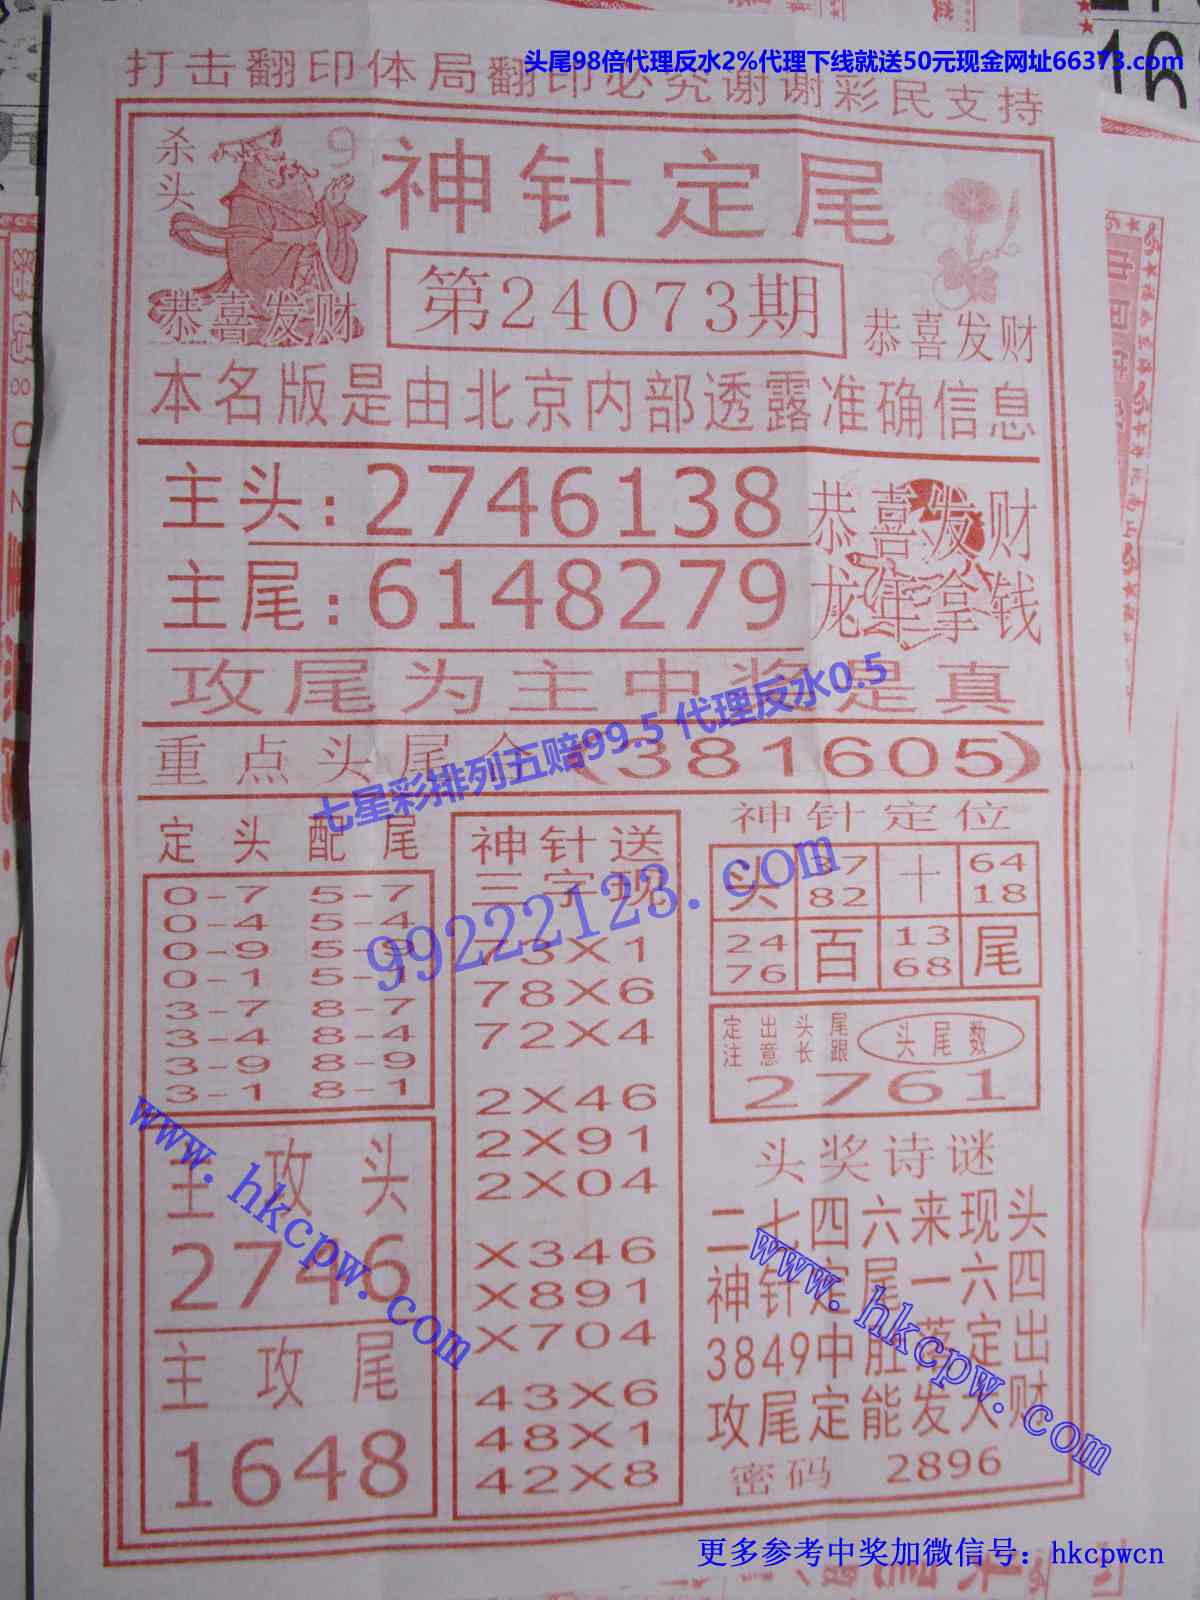 头尾98倍代理反水2%代理下线就送50元现金网址66373.com
打击翻印体局翻印必究谢谢彩民支持
杀头
9
神针定尾
恭喜发财
第24073期
恭喜发财
本名版是由北京内部透露准确信息
主头:2746138
恭喜发财
主尾:6148279
龙年拿钱
攻尾为主中奖是真
七星彩排列五赔99.5 代理反水0.5
重点头尾合(381605)
99222123.com
定头配尾
0-7 5-7
0-4 5-4
0-9 5-9
0-1 5-1
3-7 8-7
3-4 8-4
3-9 8-9
3-1 8-1
主攻头
2746
主攻尾
1648
神针送
三字现
73X1
78X6
72X4
2X46
2X91
2X04
X346
X891
X704
43X6
48X1
42X8
神针定位
头 37 十 64
82 18
24 百 13 尾
76 68
定出头尾
注意长跟
头尾数
2761
头奖诗谜
二七四六来现头
神针定尾一六四
3849中胜落定出
攻尾定能发大财
密码 2896
www.hkcpw.com
www.hkcpw.com
更多参考中奖加微信号：hkcpwcn